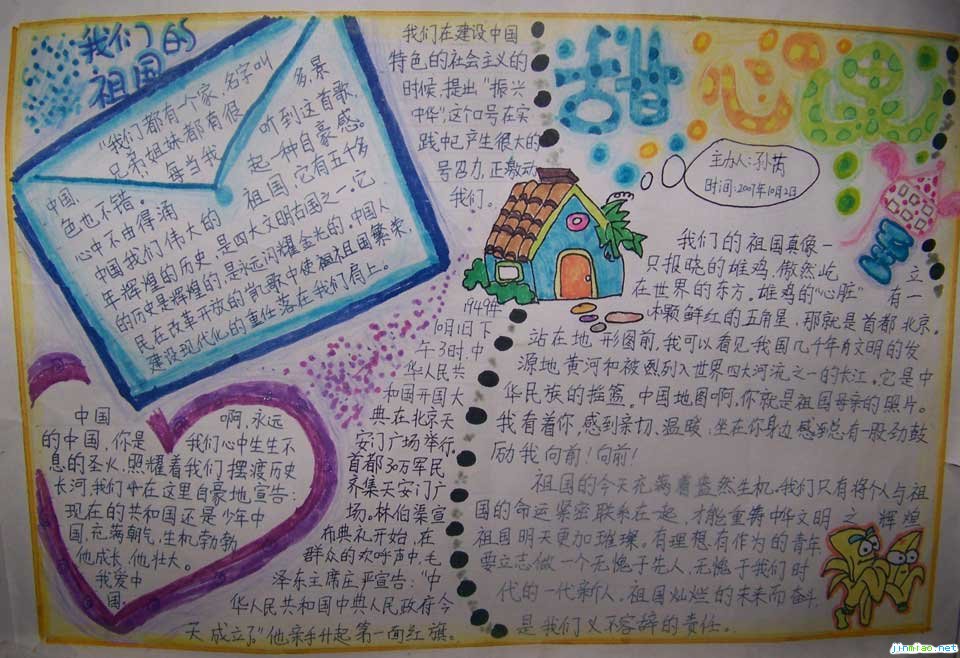 我们的
祖国
"我们都有一个家,名字叫
中国,兄弟姐妹都有很多,景
色也不错。"每当我听到这首歌,
心中不由得涌起一种自豪感。
中国我们伟大的祖国,它有五千多
年辉煌的历史,是四大文明古国之一,它
的历史是辉煌的,是永远闪耀金光的。中国人
民在改革开放的凯歌中使祖国繁荣,
建设现代化的重任落在我们肩上。
我们在建设中国
特色的社会主义的
时候,提出"振兴
中华",这个口号在实
践中已产生很大的
号召力,正激动
我们。
甜心国
主办人:孙芮
时间:2007年10月2日
我们的祖国真像一
只报晓的雄鸡,傲然屹立
在世界的东方。雄鸡的"心脏"有一
颗鲜红的五角星,那就是首都北京。
站在地形图前,我可以看见我国几千年文明的发
源地,黄河和被列入世界四大河流之一的长江。它是中
华民族的摇篮。中国地图啊,你就是祖国母亲的照片。
我看着你,感到亲切、温暖,坐在你身边感到总有一股劲鼓
励我向前!向前!
祖国的今天充满着盎然生机。我们只有将个人与祖
国的命运紧密联系在一起,才能重铸中华文明之辉煌
祖国明天更加璀璨。有理想有作为的青年
要立志做一个无愧于先人,无愧于我们时
代的一代新人,祖国灿烂的未来而奋斗,
是我们义不容辞的责任。
1949年
10月1日下
午3时,中
华人民共
和国开国大
典在北京天
安门广场举行。
首都30万军民
齐集天安门广
场。林伯渠宣
布典礼开始,在
群众的欢呼声中,毛
泽东主席庄严宣告:"中
华人民共和国中央人民政府今
天成立了"他亲手升起第一面红旗。
中国啊,永远
的中国,你是我们心中生生不
息的圣火,照耀着我们摆渡历史
长河,我们在这里自豪地宣告:
现在的共和国还是少年中
国,充满朝气,生机勃勃
他成长,他壮大。
我爱中
国。
jinmiao.net